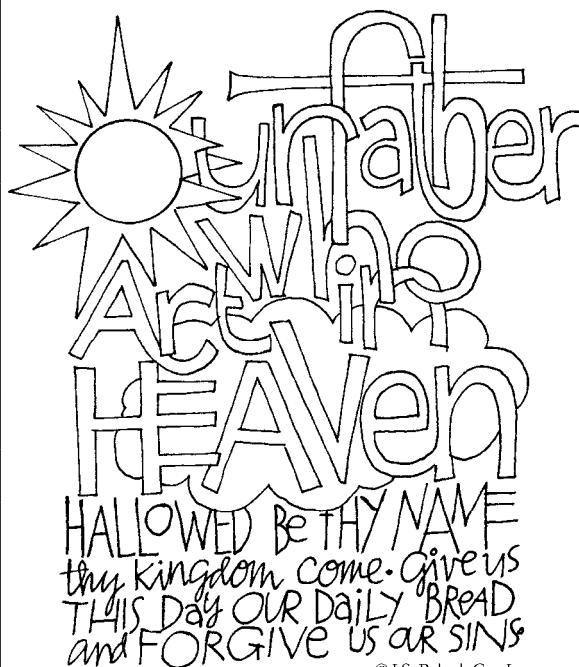 Our father
who
Art in
HEAVEN
HALLOWED Be tHY NAME
thy kingdom come. Give us
THIS Day OUR DaiLY BREAD
and FORGIVE US OUR SINS